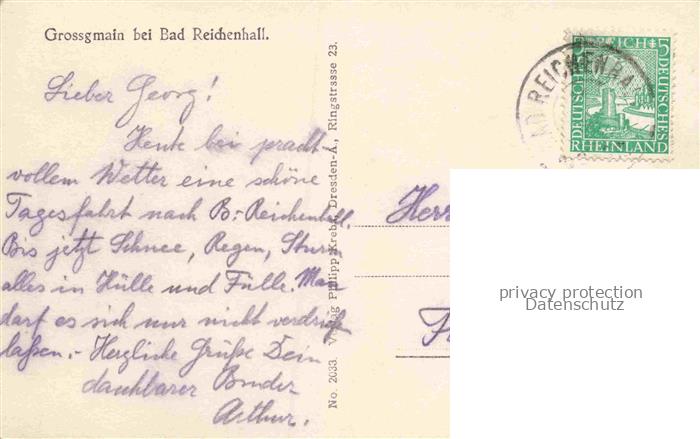 Grossgmain bei Bad Reichenhall.
Lieber Georg!
Heute bei pracht-
vollem Wetter eine schöne
Tagesfahrt nach B: Reichenhall.
Bis jetzt Schnee, Regen, Sturm
alles in Hülle und Fülle. Man
darf es sich nur nicht verdrießen
laßen.- Herzliche Grüße Dein
dankbarer Bruder
Arthur.
No. 2033. Verlag Philipp Krebs, Dresden-A., Ringstrasse 23.
BAD REICHENHA
5 REICH 5
DEUTSCHES
RHEINLAND
Herr
privacy protection
Datenschutz